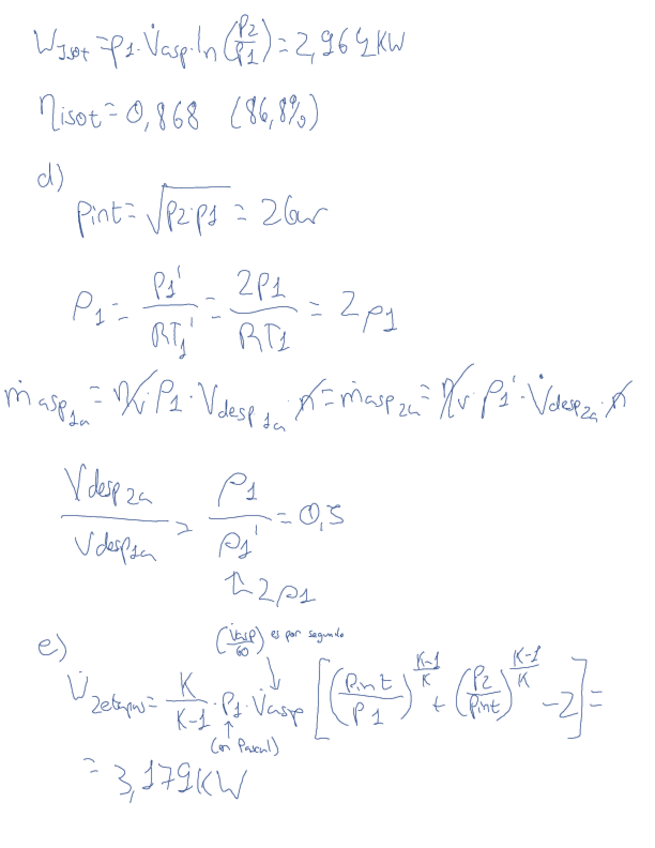 Ẇ_Isot = p1·V̇asp·ln(p2/p1) = 2,964 KW
ηisot = 0,868 (86,8%)
d)
pint = √(p2·p1) = 2 bar
ρ1 = p1'/RT1' = 2p1/RT1 = 2ρ1
ṁasp1a = ηv·ρ1·Vdesp1a·n = ṁasp2a = ηv·ρ1'·V̇desp2a·n
Vdesp2a/Vdesp1a = ρ1/ρ1' = 0,5
↑ 2ρ1
(V̇asp/60) es por segundo
e)
Ẇ2etapas = K/(K-1)·P1·V̇asp [(Pint/P1)^((K-1)/K) + (P2/Pint)^((K-1)/K) -2] =
(en Pascal)
= 3,179KW